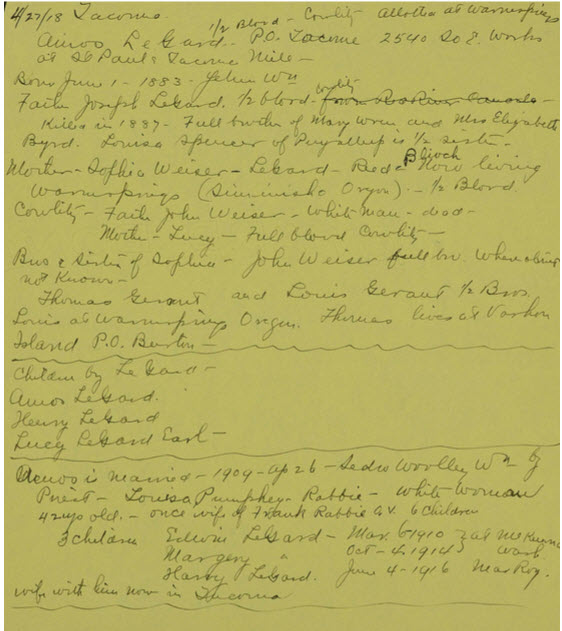 4/27/18 Tacoma. 1/2 Blood - Cowlitz Allotted at Warmsprings
Amos LeGard. P.O. Tacoma 2540 So E. Works
at St Paul & Tacoma Mill -
Born June 1 - 1883 - Wn
Father Joseph LeGard. 1/2 blood - Cowlitz from Canada -
Killed in 1887 - Full brother of Mary Wren and Mrs Elizabeth
Byrd. Louisa Spencer of Puyallup is 1/2 sister -
Mother - Sophia Weiser - LeGard - Now living
Warmsprings (Siminisho Oregon). - 1/2 Blood.
Cowlitz - Father John Weiser - White man - dead -
Mother - Lucy - Full blood Cowlitz -
Bros & Sisters of Sophia - John Weiser full bro. Whereabouts
not Known -
Thomas Gerant and Louis Gerant 1/2 Bros.
Louis at Warmsprings Oregon. Thomas lives at Vashon
Island P.O. Burton -
Children by LeGard -
Amos LeGard.
Henry LeGard
Lucy LeGard Earl -
Amos is married - 1909 - Ap 26 - Sedro Woolley Wn by
Priest - Louisa Pumphey - Rabbie - White Woman
42 yrs old. - once wife of Frank Rabbie 6 Children
3 children Edwin LeGard - Mar. 6 1910 at McKenna
Margery " Oct - 4, 1914 Wash
Harry LeGard. June 4 - 1916 Roy.
wife with him now in Tacoma